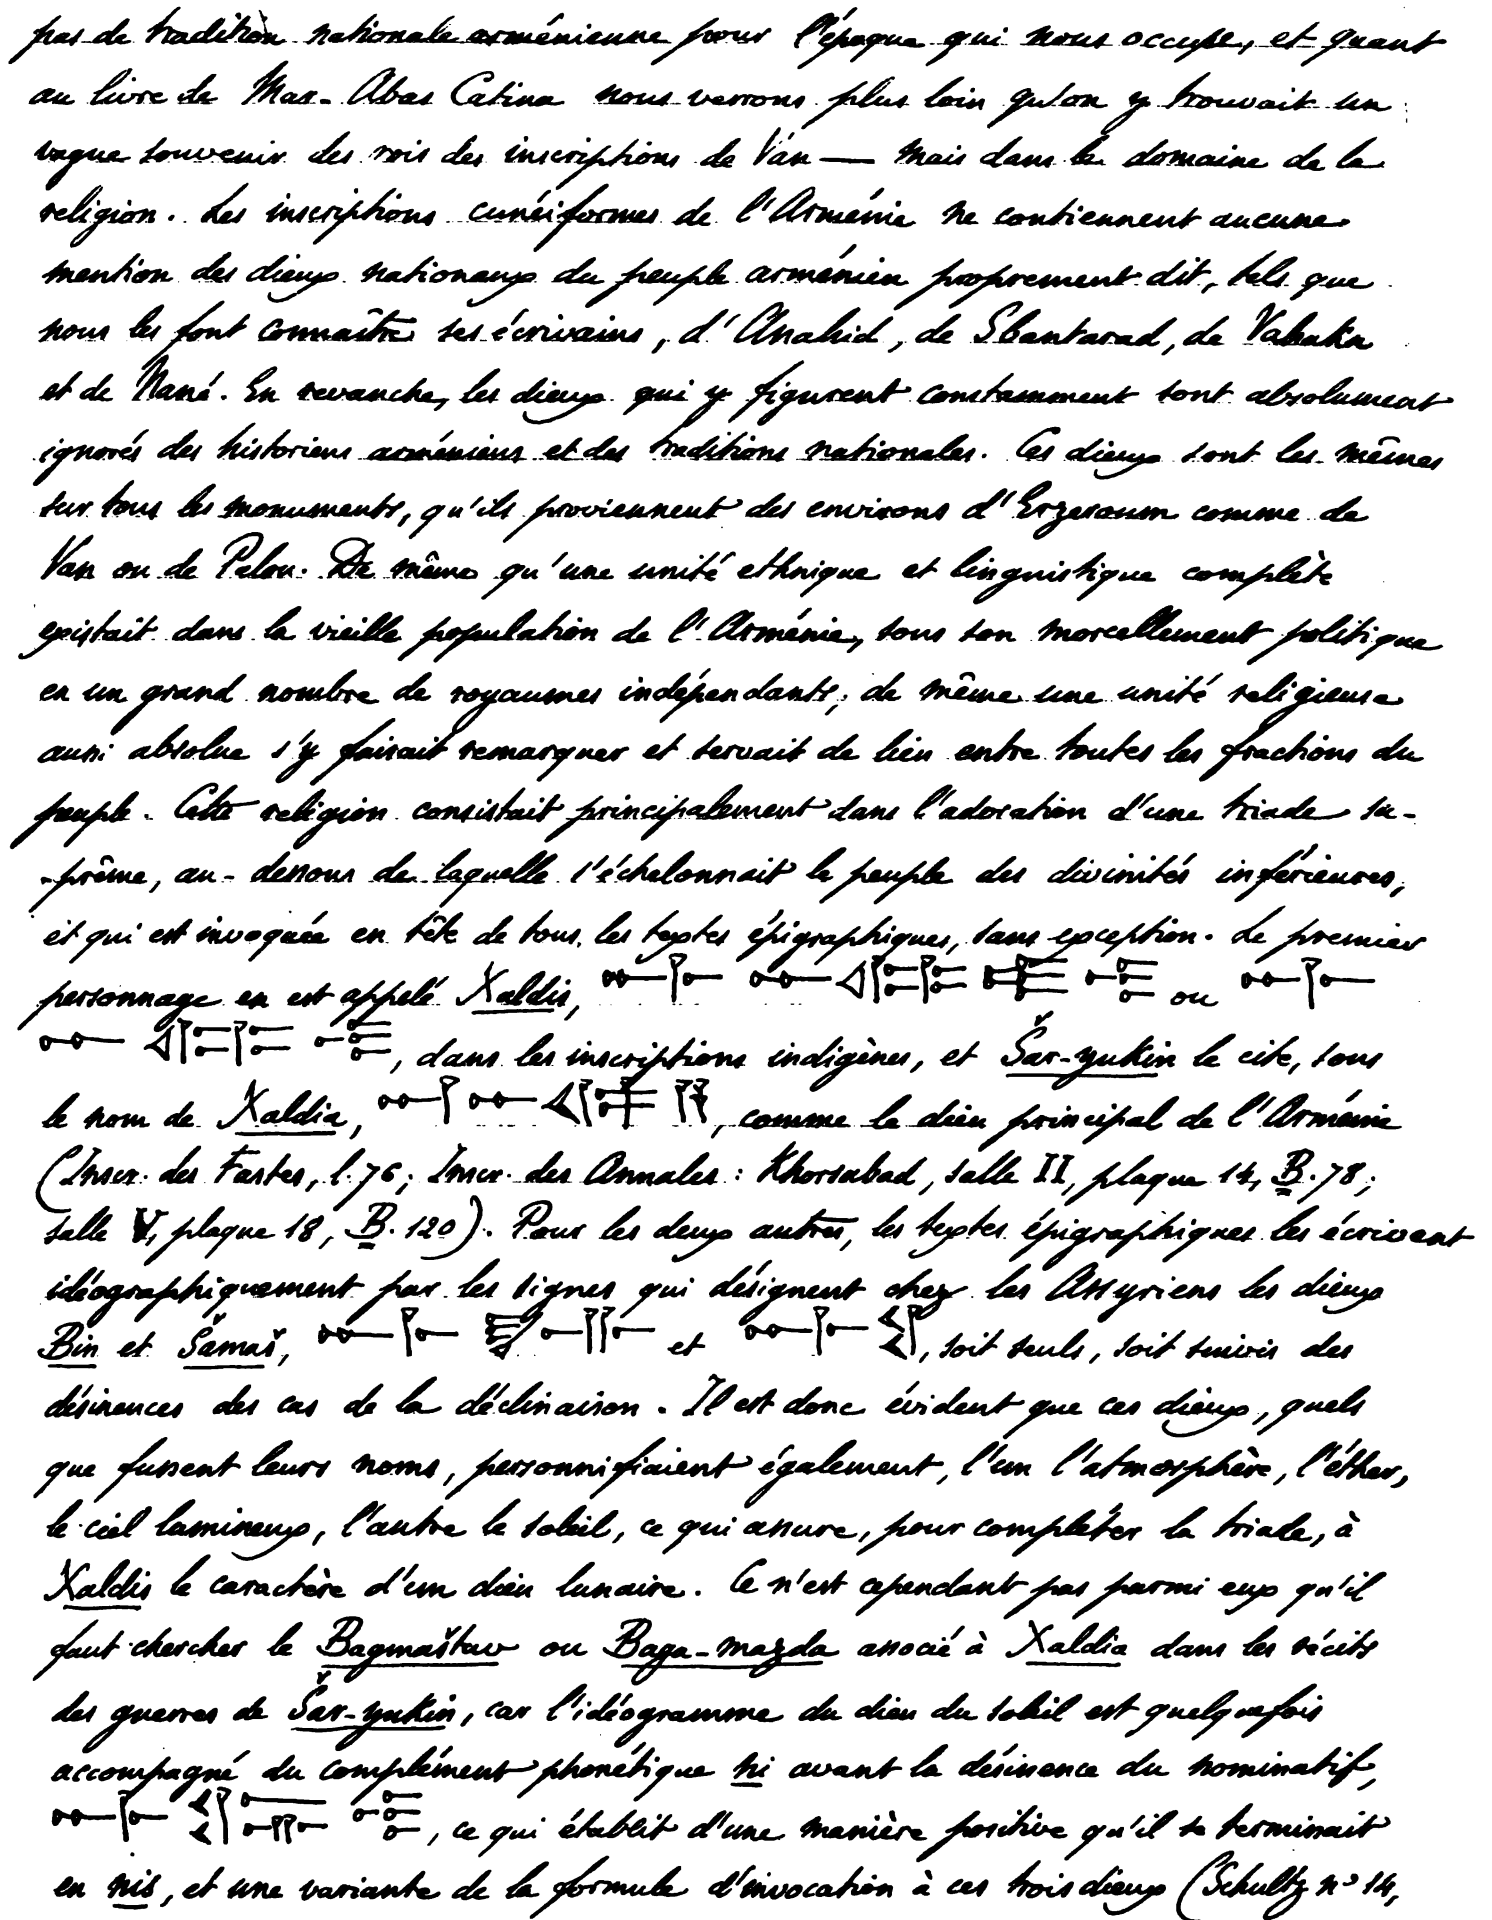 pas de tradition nationale arménienne pour l'époque qui nous occupe, et quant
au livre de Mar-Abas Catina nous verrons plus loin qu'on y trouvait un
vague souvenir des rois des inscriptions de Ván — mais dans le domaine de la
religion. Les inscriptions cunéiformes de l'Arménie ne contiennent aucune
mention des dieux nationaux du peuple arménien proprement dit, tels que
nous les font connaître ses écrivains, d'Anahid, de Sbantarad, de Vahakn
et de Nané. En revanche, les dieux qui y figurent constamment sont absolument
ignorés des historiens arméniens et des traditions nationales. Ces dieux sont les mêmes
sur tous les monuments, qu'ils proviennent des environs d'Erzeroum comme de
Van ou de Palou. De même qu'une unité ethnique et linguistique complète
existait dans la vieille population de l'Arménie, sous son morcellement politique
en un grand nombre de royaumes indépendants, de même une unité religieuse
aussi absolue s'y faisait remarquer et servait de lien entre toutes les fractions du
peuple. Cette religion consistait principalement dans l'adoration d'une triade su-
-prême, au-dessous de laquelle s'échelonnait le peuple des divinités inférieures,
et qui est invoquée en tête de tous les textes épigraphiques, sans exception. Le premier
personnage en est appelé Xaldis, ou
, dans les inscriptions indigènes, et Šar-yukin le cite, sous
le nom de Xaldia, , comme le dieu principal de l'Arménie
(Inscr. des Fastes, l. 76; Inscr. des Annales : Khorsabad, salle II, plaque 14, B. 78;
salle V, plaque 18, B. 120). Pour les deux autres, les textes épigraphiques les écrivent
idéographiquement par les signes qui désignent chez les Assyriens les dieux
Bin et Šamaš, et , soit seuls, soit suivis des
désinences des cas de la déclinaison. Il est donc évident que ces dieux, quels
que fussent leurs noms, personnifiaient également, l'un l'atmosphère, l'éther,
le ciel lumineux, l'autre le soleil, ce qui assure, pour compléter la triade, à
Xaldis le caractère d'un dieu lunaire. Ce n'est cependant pas parmi eux qu'il
faut chercher le Bagmaštuv ou Baga-mazda associé à Xaldia dans les récits
des guerres de Šar-yukin, car l'idéogramme du dieu du soleil est quelquefois
accompagné du complément phonétique ni avant la désinence du nominatif,
, ce qui établit d'une manière positive qu'il se terminait
en nis, et une variante de la formule d'invocation à ces trois dieux (Schultz nº 14,